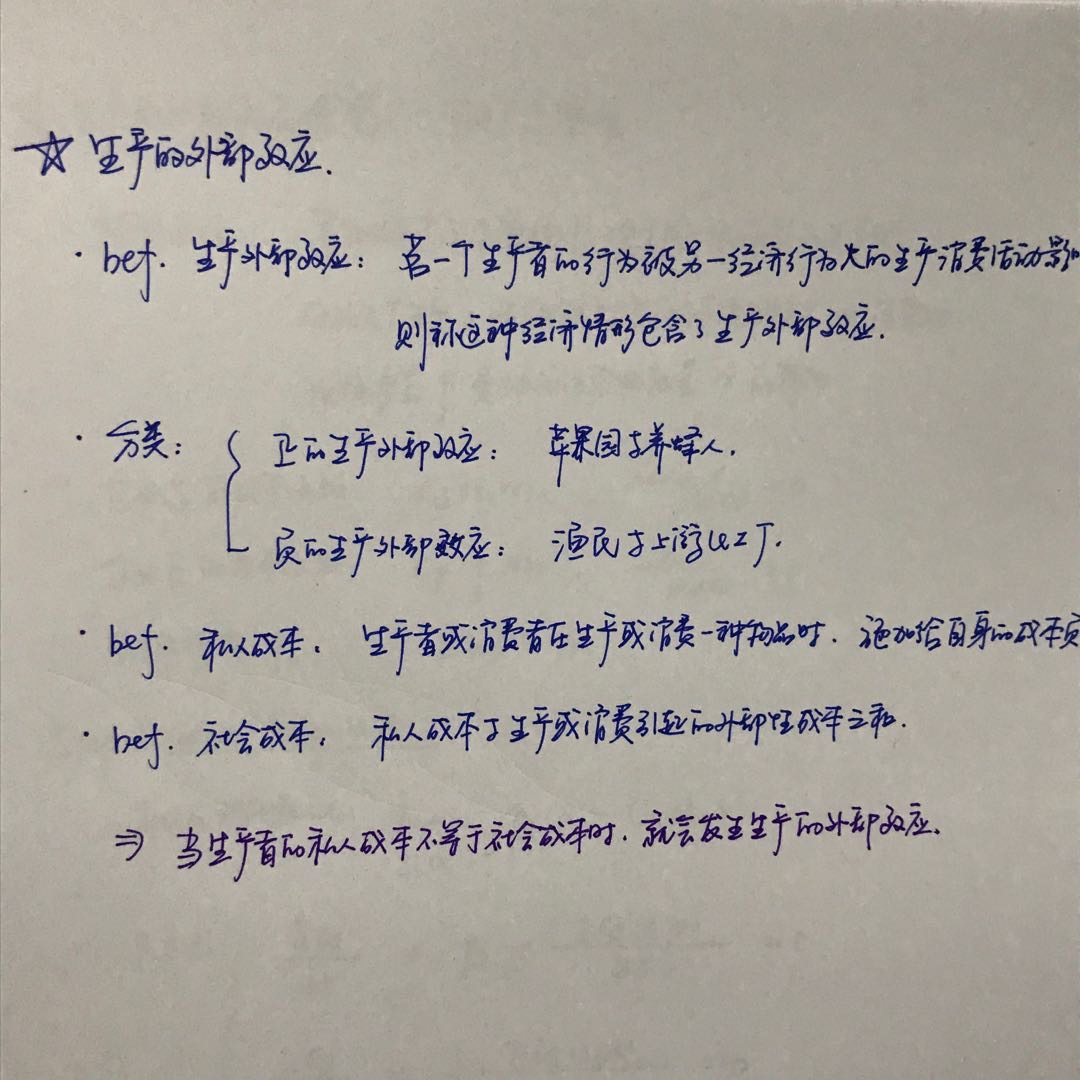 ☆ 生产的外部效应.
· def. 生产外部效应: 若一个生产者的行为被另一经济行为人的生产消费活动影
则称这种经济情形包含了生产外部效应.
· 分类: { 正的生产外部效应: 苹果园与养蜂人.
负的生产外部效应: 渔民与上游化工厂.
· def. 私人成本. 生产者或消费者在生产或消费一种物品时. 施加给自身的成本
· def. 社会成本. 私人成本与生产或消费引起的外部性成本之和.
⇒ 当生产者的私人成本不等于社会成本时. 就会发生生产的外部效应.